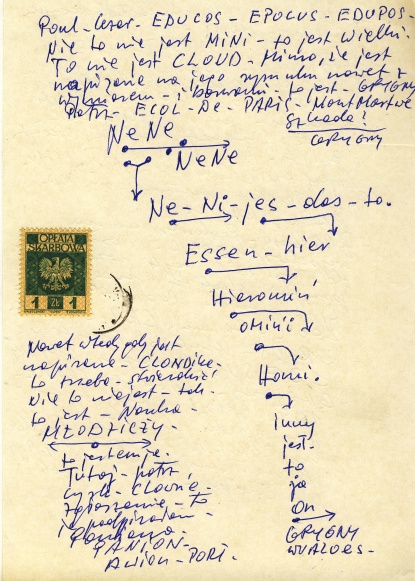 Paul - Cesar - EDUCOS - EPOCUS - EDUPOS -
Nie to nie jest MINI - to jest Wielki.
To nie jest CLOUD - Mimo, że jest
napisane na jego nawet z
i to jest - GRYGNY
Patrz - ECOL - De - PARIS - MontMartre
Szkoda!
GRYGNY
NeNe
NeNe
Ne - Ni - jes - das - to.
Essen - hier
OPŁATA
SKARBOWA
1 ZŁ 1
Hieronim
OMINI
Homi.
Nawet wtedy gdy jest
napisane - CLONDIKE -
to trzeba - stwierdzić
Nie to niejest - tak.
to jest - Nauka -
MŁODZICZY -
to jestemja.
Tutaj - patrz,
czyli - CLOWNE -
zgłoszenie - to
ja podpisałem -
PANION -
AVION - PORT.
inny
jest.
to
ja
On
GRYGNY